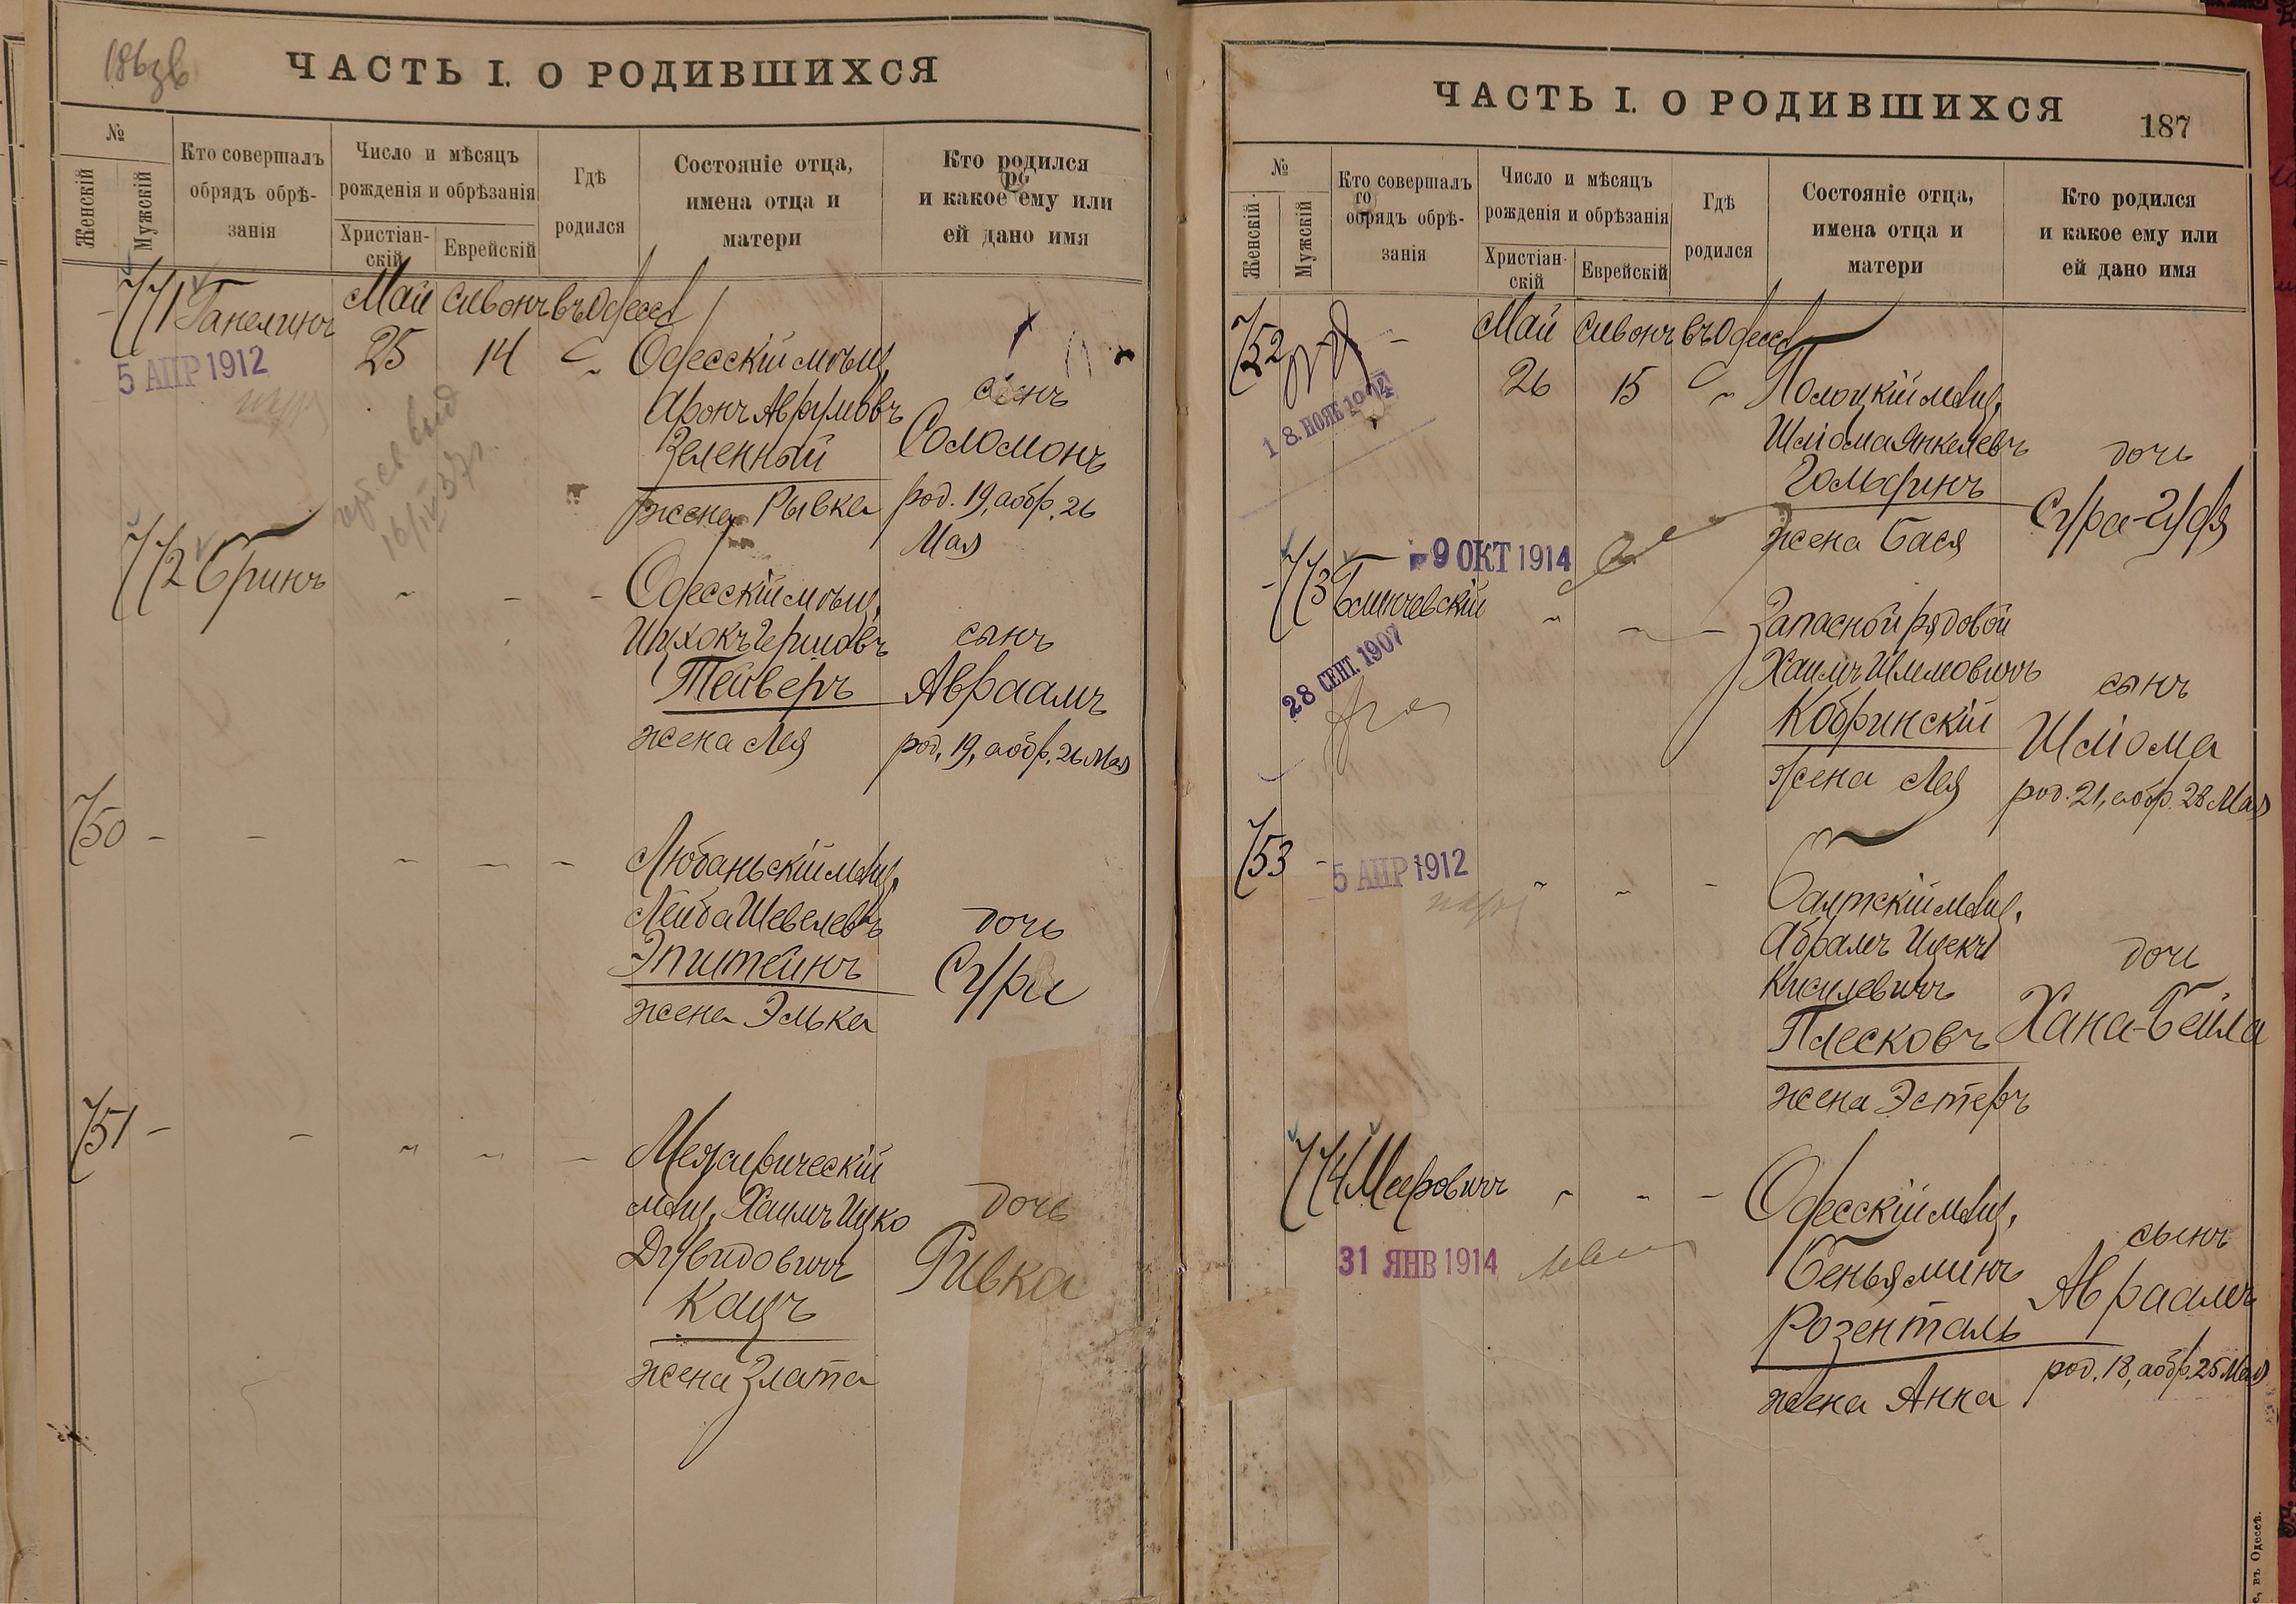 186 зв
ЧАСТЬ I. О РОДИВШИХСЯ
№
Женскій
Мужскій
Кто совершалъ
обрядъ обрѣ-
занія
Число и мѣсяцъ
рожденія и обрѣзанія
Христіан-
скій
Еврейскій
Гдѣ
родился
Состояніе отца,
имена отца и
матери
Кто родился
и какое ему или
ей дано имя
771 Ганелинъ Май Сивонъ въ Одессѣ
25 14
5 АПР 1912
Одесскій мѣщ.
Аронъ Аврумовъ
Зеленный
жена Рывка
сынъ
Соломонъ
род. 19, а обр. 26
Мая
16/IV 37 г.
772 Бринъ
Одесскій мѣщ.
Ицхокъ Гершовъ
Тейверъ
жена Лея
сынъ
Авраамъ
род. 19, а обр. 26 Мая
750 - -
Любаньскій мѣщ.
Лейба Шевелевъ
Эпштейнъ
жена Элька
дочь
Сура
751 - -
мѣщ. Хаимъ Ицко
Дувидовичъ
Кацъ
жена Злата
дочь
Ривка
ЧАСТЬ I. О РОДИВШИХСЯ
187
№
Женскій
Мужскій
Кто совершалъ
обрядъ обрѣ-
занія
Число и мѣсяцъ
рожденія и обрѣзанія
Христіан-
скій
Еврейскій
Гдѣ
родился
Состояніе отца,
имена отца и
матери
Кто родился
и какое ему или
ей дано имя
752 - - Май Сивонъ въ Одессѣ
26 15
Полоцкій мѣщ.
Шліома Янкелевъ
Гольфинъ
жена Бася
дочь
Сура-
9 ОКТ 1914
773 Блинчевскій
28 СЕНТ. 1907
Запасной рядовой
Хаимъ Шлемовичъ
Кобринскій
жена Лея
сынъ
Шліома
род. 21, а обр. 28 Мая
753 -
5 АПР 1912
Балтскій мѣщ.
Абрамъ Ицекъ
Кисилевичъ
Плесковъ
жена Эстеръ
дочь
Хана-Бейла
774 Мееровичъ
31 ЯНВ 1914
Одесскій мѣщ.
Беньяминъ
Розенталь
жена Анна
сынъ
Авраамъ
род. 18, а обр. 25 Мая
въ Одессѣ.